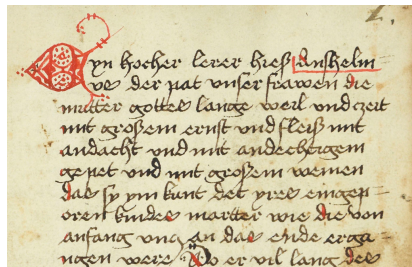 Eyn hocher lerer hieß anshelm
us der pat unser frawen die
mutter gottes lange weil und zeit
mit großem ernst und fleiß mit
andacht und mit andechtigem
gepet und mit großem weinen
das sy ym kunt det yres eingep-
oren kindes martter wie die von
anfang untz an das ende erga-
ngen were Do er vil lang des